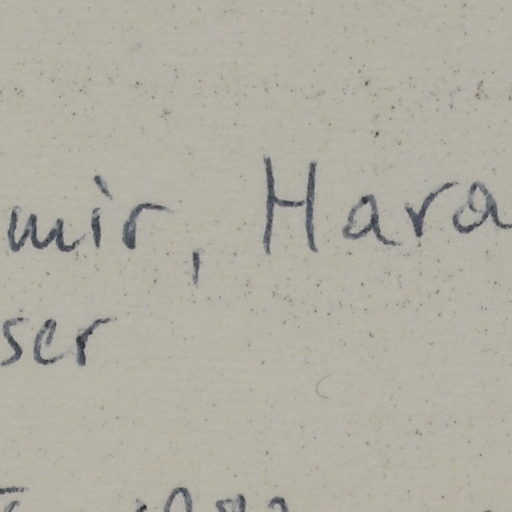 mir, Hara
ser